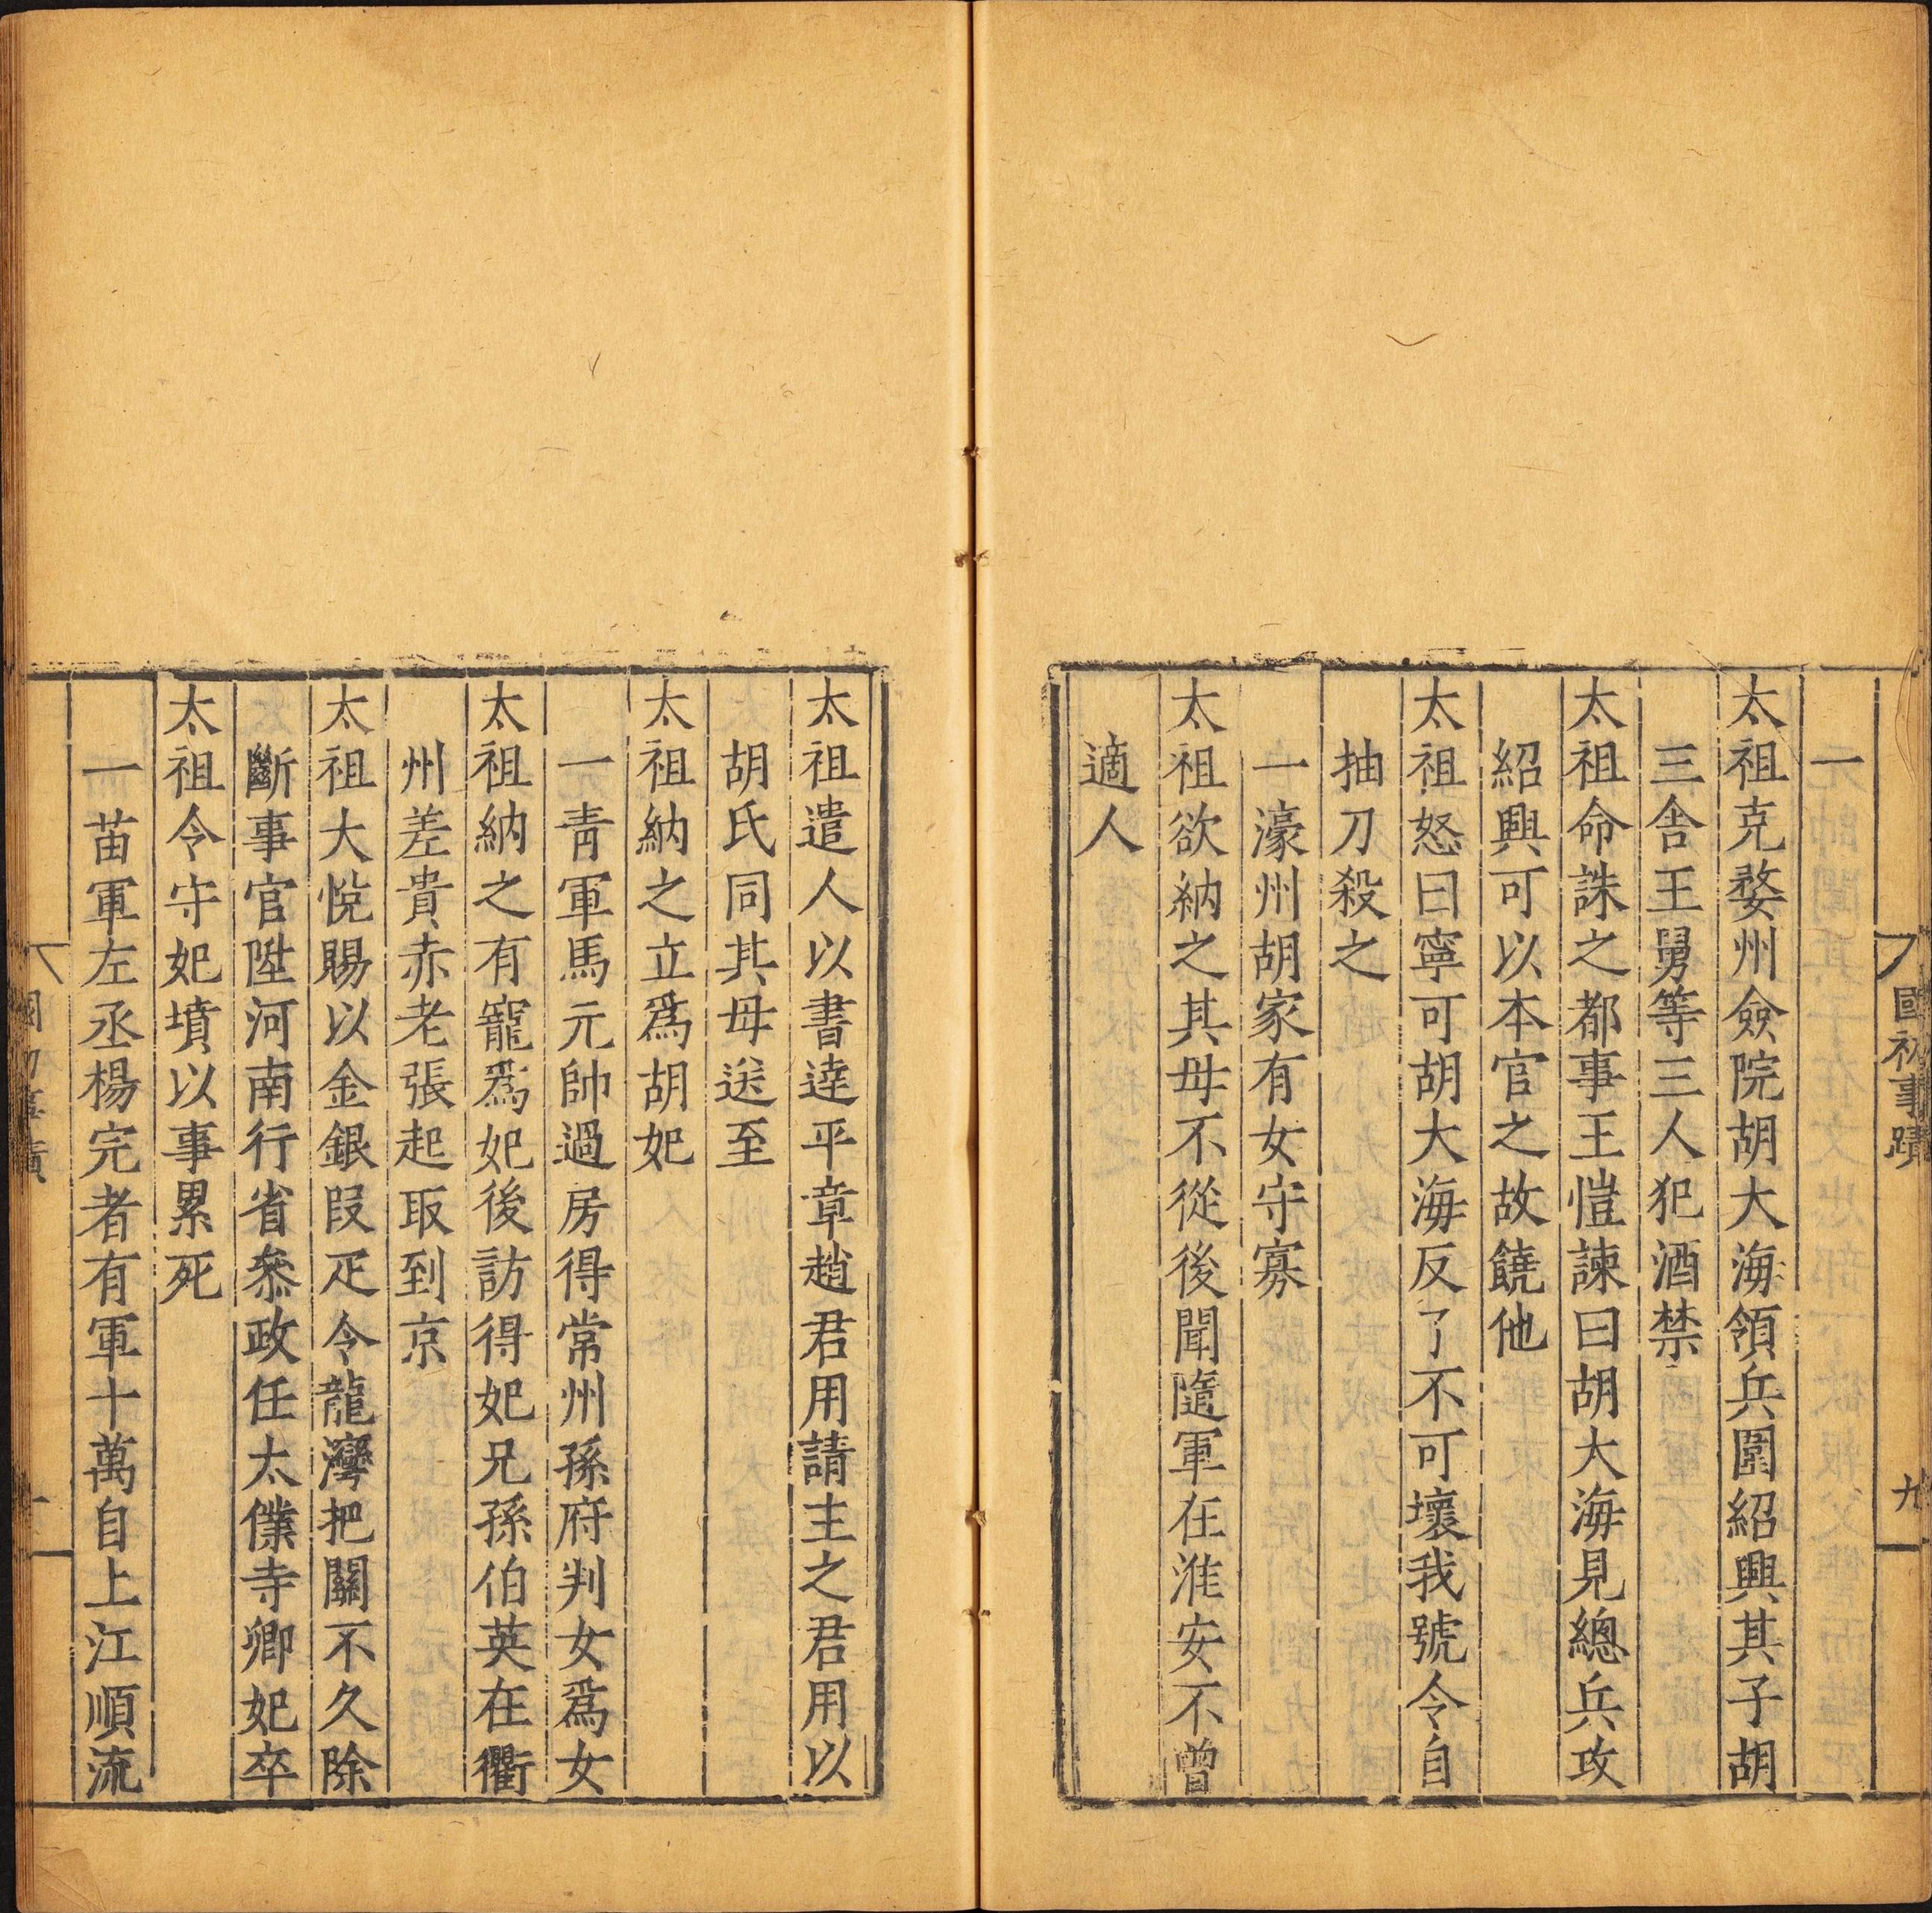 國初事蹟
九
一
太祖克婺州僉院胡大海領兵圍紹興其子胡
三舍王舅等三人犯酒禁
太祖命誅之都事王愷諫曰胡大海見總兵攻
紹興可以本官之故饒他
太祖怒曰寧可胡大海反了不可壞我號令自
抽刀殺之
一濠州胡家有女守寡
太祖欲納之其毋不從後聞隨軍在淮安不曾
適人
太祖遣人以書達平章趙君用請主之君用以
胡氏同其毋送至
太祖納之立爲胡妃
一靑軍馬元帥過房得常州孫府判女爲女
太祖納之有寵爲妃後訪得妃兄孫伯英在衢
州差貴赤老張起取到京
太祖大悅賜以金銀叚疋令龍灣把關不久除
斷事官陞河南行省叅政任太僕寺卿妃卒
太祖令守妃墳以事累死
一苗軍左丞楊完者有軍十萬自上江順流